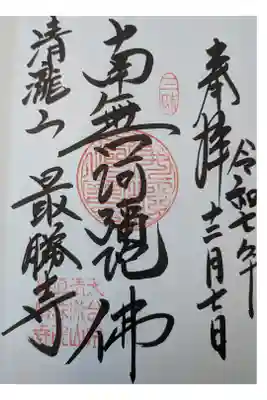 奉拝
令和七年
十二月七日
南無阿彌陀佛
清瀧山
最勝寺